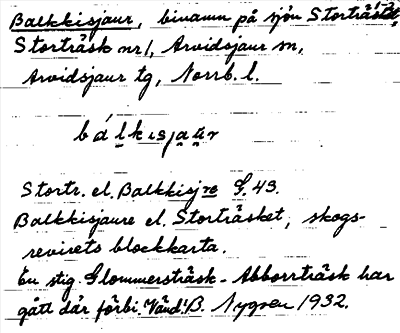 Balkkisjaur, binamn på sjön Storträsket,
Storträsk nr 1, Arvidsjaur sn,
Arvidsjaur tg, Norrb. l.
bálkisjaur
Stortr. el. Balkkisjre G. 43.
Balkkisjaure el. Storträsket, skogs-
revirets blockkarta.
En stig Glommersträsk - Abborrträsk har
gått där förbi. B. Nygren 1932.